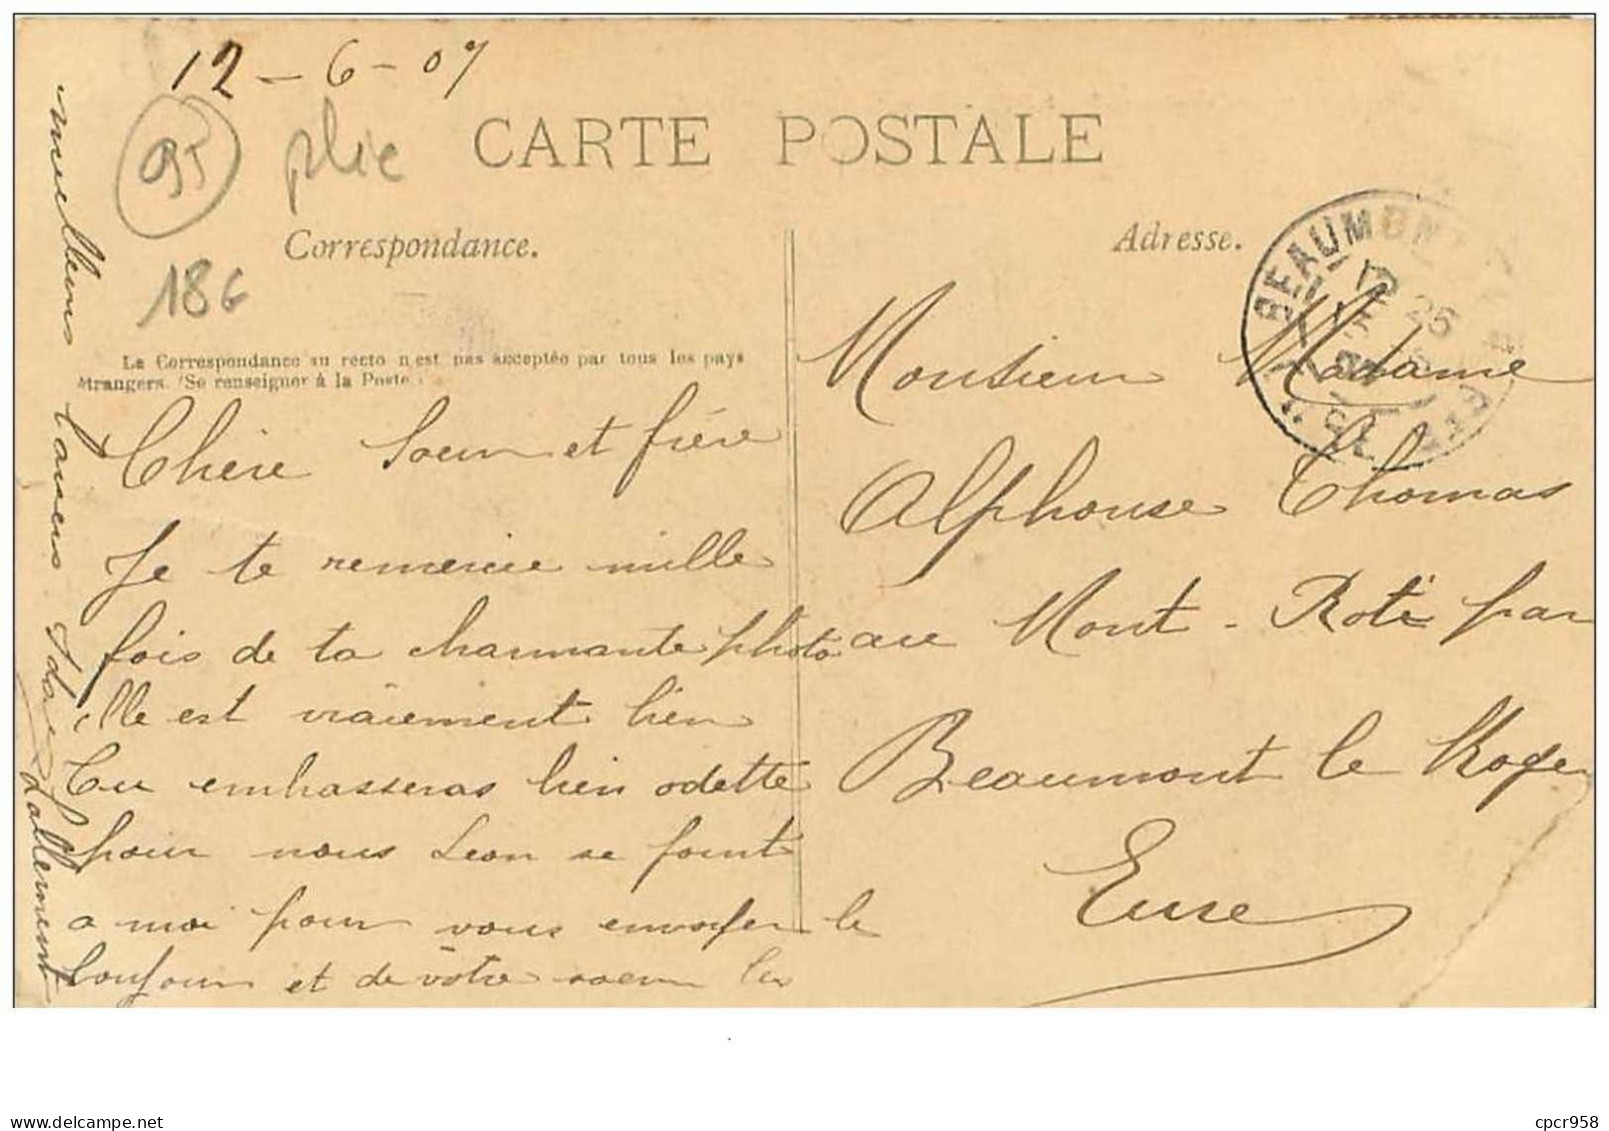 12 - 6 - 07
95
plie
186
CARTE POSTALE
Correspondance.
Adresse.
La Correspondance au recto n'est pas acceptée par tous les pays
étrangers. (Se renseigner à la Poste.)
BEAUMONT
EURE
Chère Soeur et frère
Je te remercie mille
fois de ta charmante photo
elle est vraiement bien
Tu embasseras bien odette
pour nous Leon se joint
a moi pour vous envoyer le
toujour et de votre soeur les
meilleurs baisers
Lallement
Monsieur Madame
Alphonse Thomas
au Mont - Roti par
Beaumont le Roger
Eure
delcampe.net
cpcr958